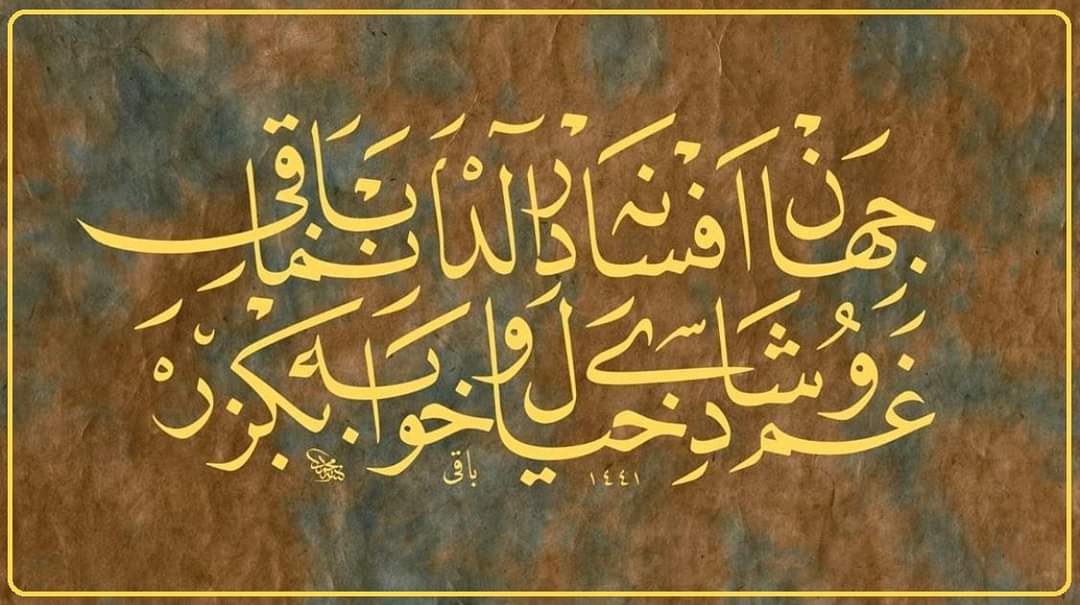 جهان افسانه در آلدانما باقی
غم و شادی خیال و خوابه بکزر
١٤٤١ باقی